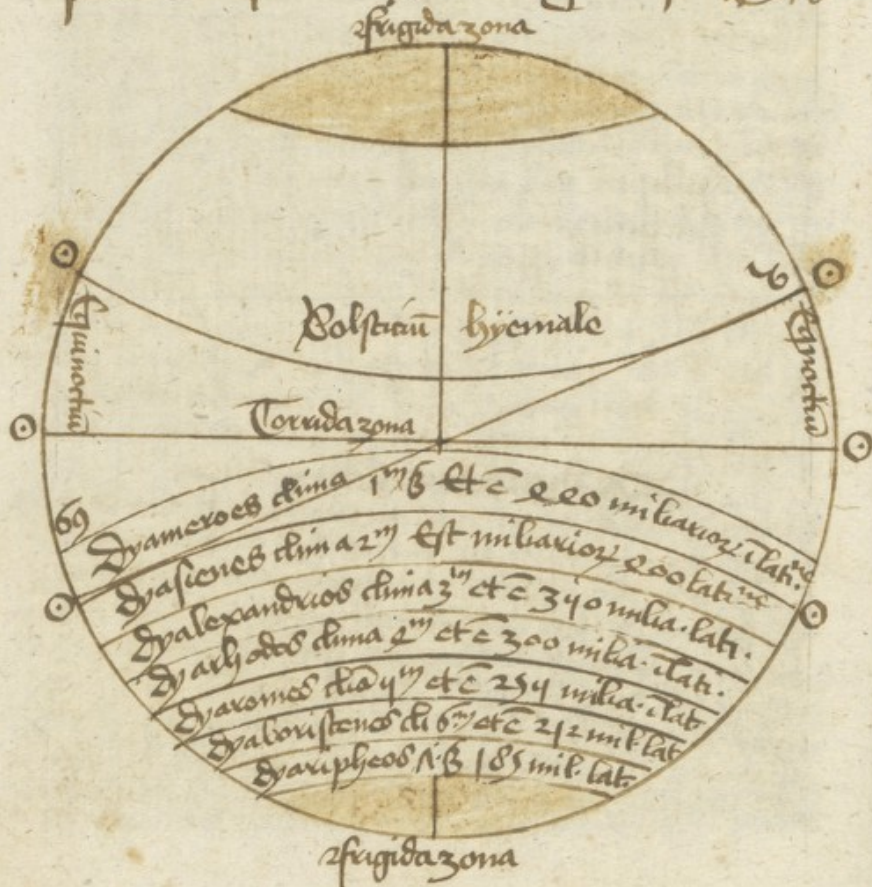 ffrigida zona
Solsticiū hyemale
Equinoctiū
Eqnoctiū
Torrida zona
69
dyameroes clima 1m S Et ē 440 miliarioꝝ ī lati.
dyasienes clima 2m Est miliarioꝝ 400 lati
dyalexandrios clima 3m et ē 350 milia. lati.
dyarhodos clima 4m et ē 300 milia. ī lati.
dyaromes clīa 5m et ē 255 milia. ī lat
dyaboristenes cli 6m et ē 212 mil. lat
dyaripheos 185 mil. lat.
ffrigida zona